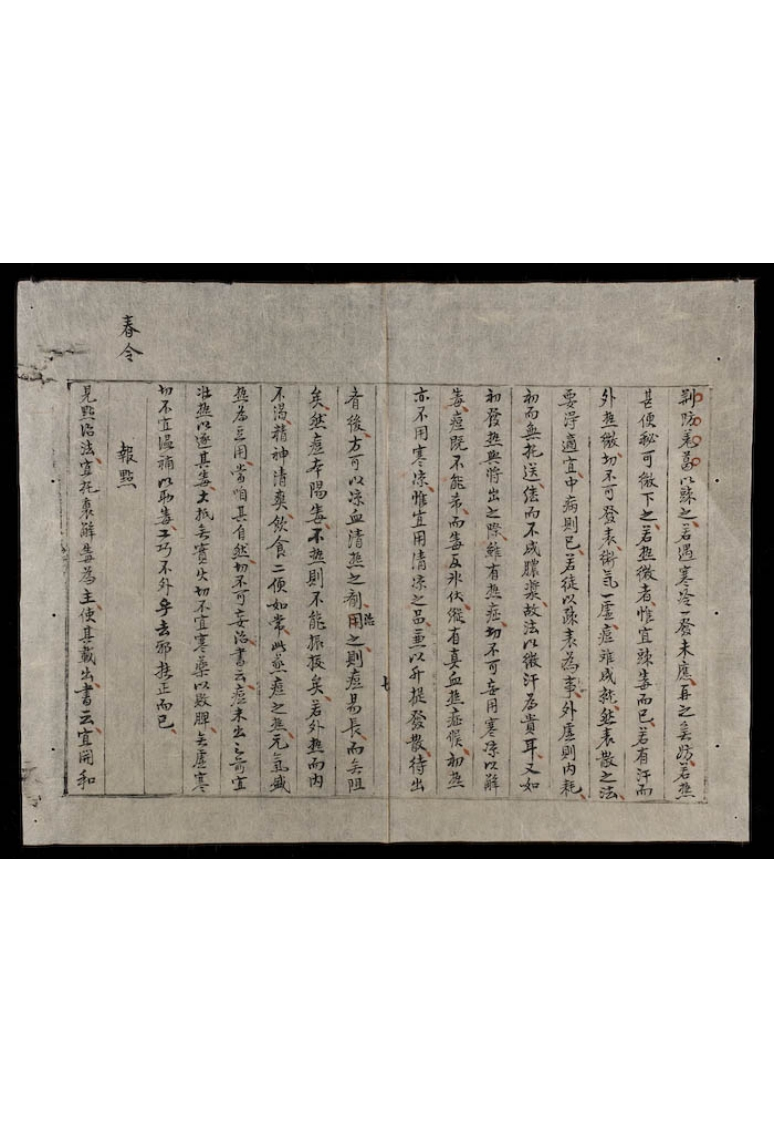 荆防羌葛以踈之若遇寒冷一發未應再之矣妨若热
甚便秘可微下之若热微者惟宜踈毒而已若有汗而
外热微切不可發表衛氣一虛痘难成就然表散之法
要淂適宜中病則已若徒以踈表為事外虛則内耗
初而無托送儘而不成膿漿故法以微汗為貴耳又如
初發热與将出之際雖有热症切不可妄用寒凉以觧
毒痘既不能希而毒反氷伏縱有真血热症候初热
亦不用寒凉惟宜用清凉之品兼以升提發散待出
七
者後方可以凉血清热之劑治用之則痘易長而矣阻
矣然痘本陽毒不热則不能振拨矣若外热而内
不渴精神清爽飲食二便如常此蒸痘之热元氣盛
热為豆用當咱其自然切不可妄治書云痘未出之前宜
壮热以逐其毒大抵矣實火切不宜寒藥以敗脾矣虛寒
切不宜温補以助毒工巧不外乎去邪扶正而已
報點
春令
見點治法宜托裏觧毒為主使其載出書云宜開和